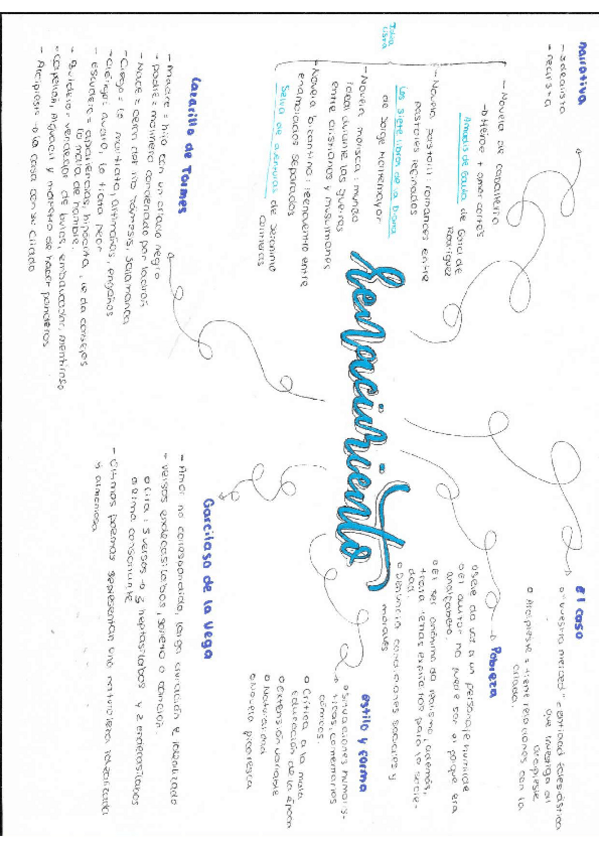 Renacimiento
narrativa
- idealista
- realista
- Novela de caballería
→ Héroe + amor cortés
Amadís de Gaula de Garci de
Rodríguez
- Novela pastoril: romances entre
pastores refinados
Los siete libros de la Diana
de Jorge Montemayor
- Novela morisca: mundo
durante las guerras
entre cristianos y musulmanes
- Novela bizantina: reencuentro entre
enamorados separados
Selva de aventuras de Jerónimo
Contreras
Lazarillo de Tormes
- Madre = hijo con un criado negro
- padre = molinero condenado por ladrón
- Nace = cerca del río Tormes: Salamanca
- Ciego = lo maltrata, artimañas, engaños
- clérigo: avaro, lo trata peor
- escudero = apariencias, hipócrita, le da consejos
lo mata de hambre.
- Buldero = vendedor de bulas, embaucador, mentiroso
- capellán, Alguacil y maestro de hacer panderos
- Arcipreste → lo casa con su criada
El caso
de identidad
que investiga al
arcipreste
Arcipreste = tiene relaciones con la
criada.
Pobreza
Se le da voz a un personaje humilde
El autor no puede ser él porque era
analfabeto
El ser anónimo da realismo, además,
trata temas para la socie-
dad.
Denuncia condiciones sociales y
morales
Estilo y forma
Situaciones humorís-
ticas, comentarios
cómicos.
Crítica a la mala
educación de la época
Extensión variable
Naturalidad
Novela picaresca
Garcilaso de la Vega
- Amor no correspondido, larga duración e idealizado
- versos endecasílabos, soneto o canción.
lira: 5 versos → 3 heptasílabos y 2 endecasílabos
rima consonante
- Últimos poemas representan una naturaleza idealizada
y armoniosa